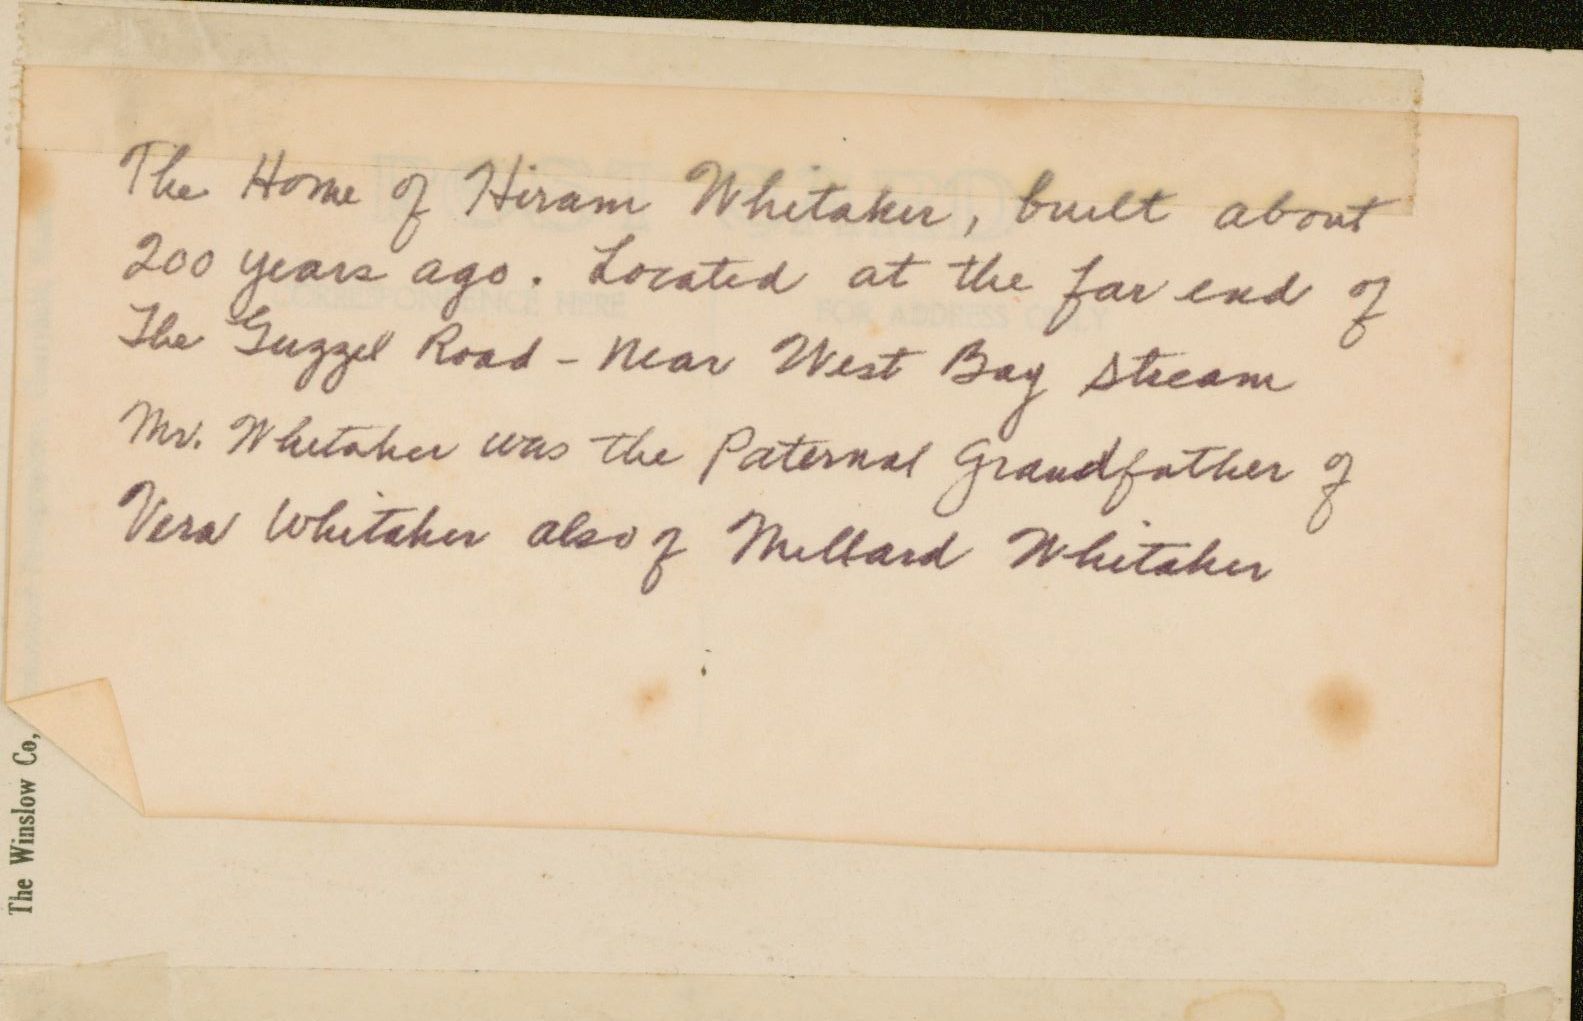 The Home of Hiram Whitaker, built about
200 years ago. Located at the far end of
The Guzzel Road - Near West Bay Stream
Mr. Whitaker was the Paternal Grandfather of
Vera Whitaker also of Millard Whitaker
POST CARD
CORRESPONDENCE HERE
FOR ADDRESS ONLY
The Winslow Co,